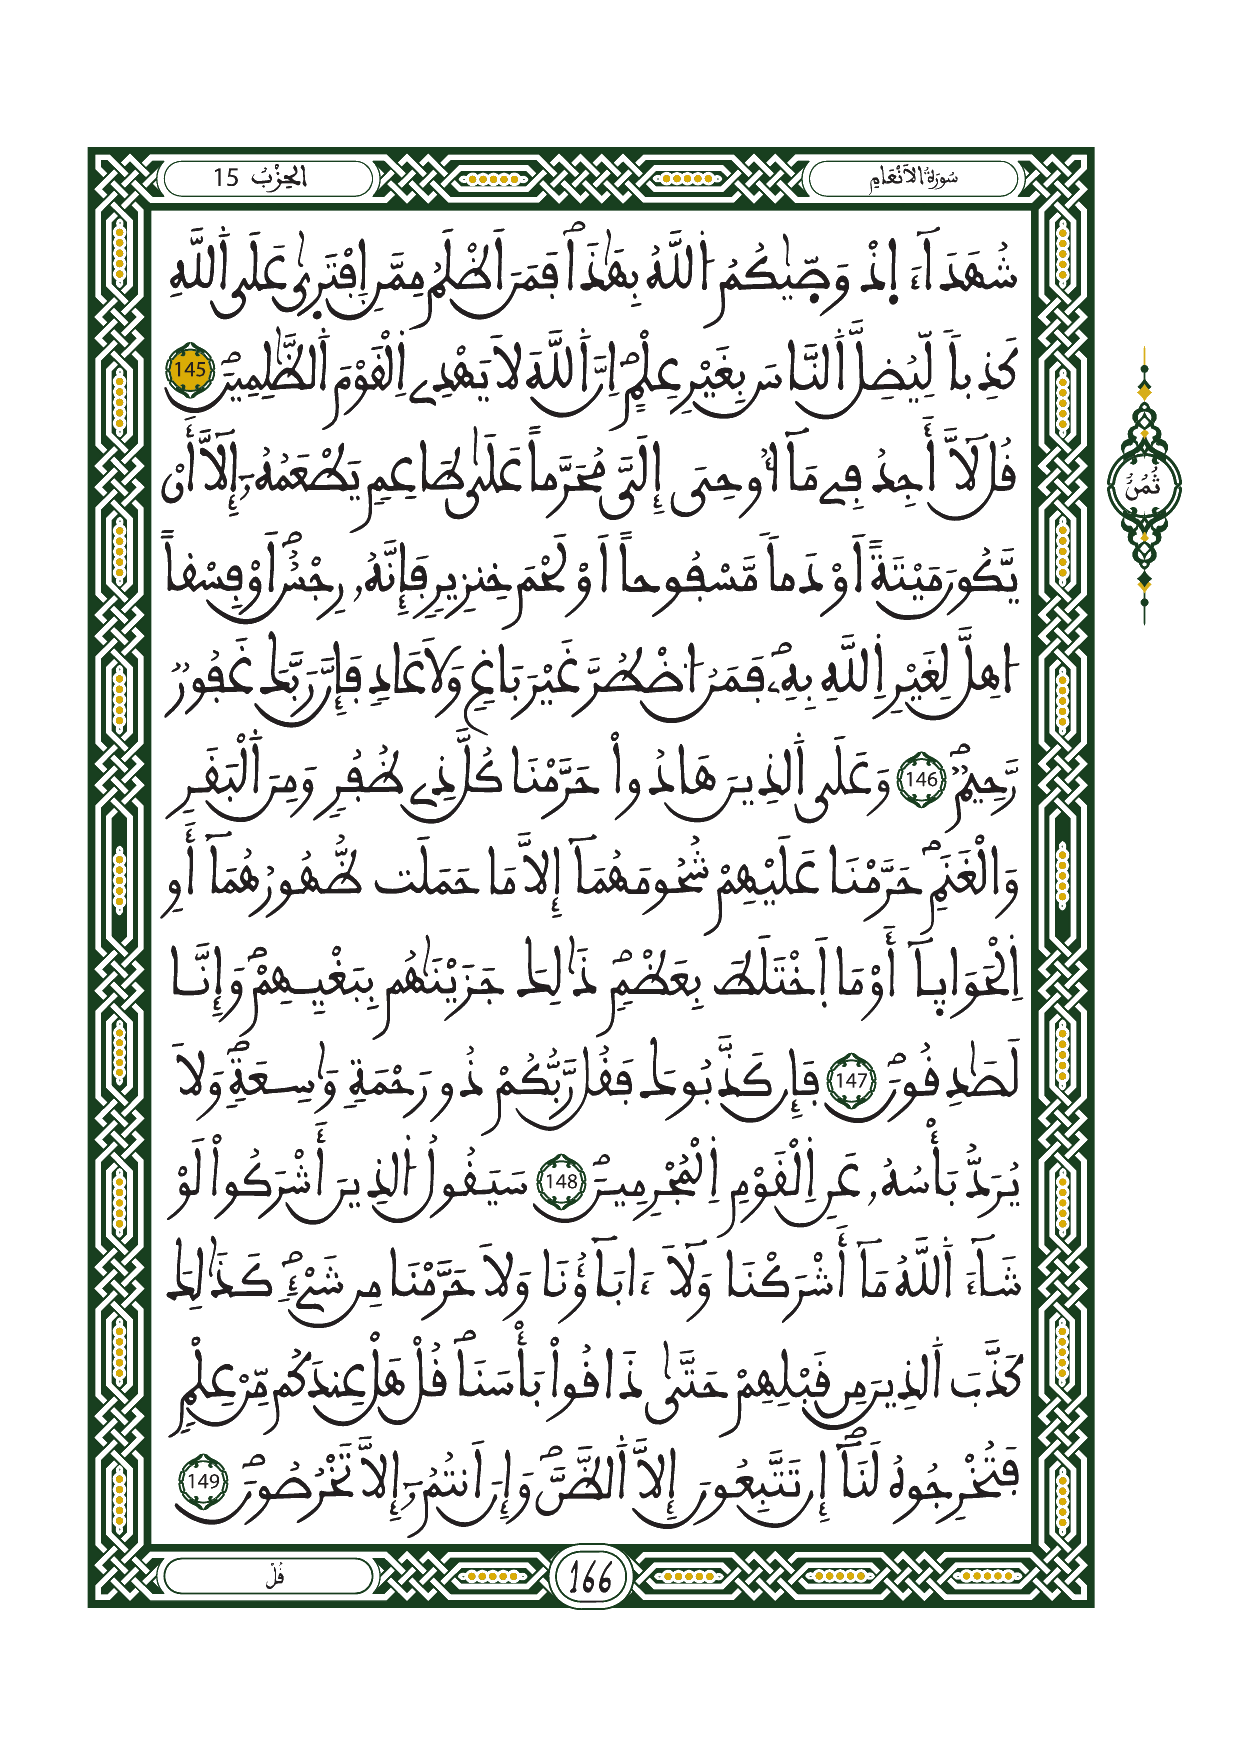 سُورَةُ الَانْعَامِ
الحِزْبُ 15
شُهَدَآءَ اِذْ وَصّ۪يٰكُمُ اُ۬للَّهُ بِهَٰذَاۖ فَمَنَ اَظْلَمُ مِمَّنِ اِ۪فْتَر۪يٰ عَلَي اَ۬للَّهِ
كَذِباٗ لِّيُضِلَّ اَ۬لنَّاسَ بِغَيْرِ عِلْمٍۖ اِنَّ اَ۬للَّهَ لَا يَهْدِے اِ۬لْقَوْمَ اَ۬لظَّٰلِمِينَۖ 145
قُل لَّآ أَجِدُ فِے مَآ أُوحِيَ إِلَيَّ مُحَرَّماً عَلَيٰ طَاعِمٖ يَطْعَمُهُۥٓ إِلَّآ أَنْ
يَّكُونَ مَيْتَةً اَوْ دَماٗ مَّسْفُوحاً اَوْ لَحْمَ خِنزِيرٖ فَإِنَّهُۥ رِجْسٌۖ اَوْ فِسْقاً
ا۟هِلَّ لِغَيْرِ اِ۬للَّهِ بِهِۦۖ فَمَنُ اُ۟ضْطُرَّ غَيْرَ بَاغٖ وَلَا عَادٖ فَإِنَّ رَبَّكَ غَفُورٞ
رَّحِيمٞۖ 146 وَعَلَي اَ۬لذِينَ هَادُواْ حَرَّمْنَا كُلَّ ذِے ظُفُرٖ وَمِنَ اَ۬لْبَقَرِ
وَالْغَنَمِۖ حَرَّمْنَا عَلَيْهِمْ شُحُومَهُمَآ إِلَّا مَا حَمَلَت ظُّهُورُهُمَآ أَوِ
اِ۬لْحَوَايَآ أَوْ مَا اَ۪خْتَلَطَ بِعَظْمٖۖ ذَٰلِكَ جَزَيْنَٰهُم بِبَغْيِهِمْۖ وَإِنَّا
لَصَٰدِقُونَۖ 147 فَإِن كَذَّبُوكَ فَقُل رَّبُّكُمْ ذُو رَحْمَةٖ وَٰسِعَةٖۖ وَلَا
يُرَدُّ بَأْسُهُۥ عَنِ اِ۬لْقَوْمِ اِ۬لْمُجْرِمِينَۖ 148 سَيَقُولُ اُ۬لذِينَ أَشْرَكُواْ لَوْ
شَآءَ اَ۬للَّهُ مَآ أَشْرَكْنَا وَلَآ ءَابَآؤُنَا وَلَا حَرَّمْنَا مِن شَےْءٖۖ كَذَٰلِكَ
كَذَّبَ اَ۬لذِينَ مِن قَبْلِهِمْ حَتَّيٰ ذَاقُواْ بَأْسَنَاۖ قُلْ هَلْ عِندَكُم مِّنْ عِلْمٖ
فَتُخْرِجُوهُ لَنَآۖ إِن تَتَّبِعُونَ إِلَّا اَ۬لظَّنَّۖ وَإِنَ اَنتُمُۥٓ إِلَّا تَخْرُصُونَۖ 149
ثُمُنُ
قُلْ
166